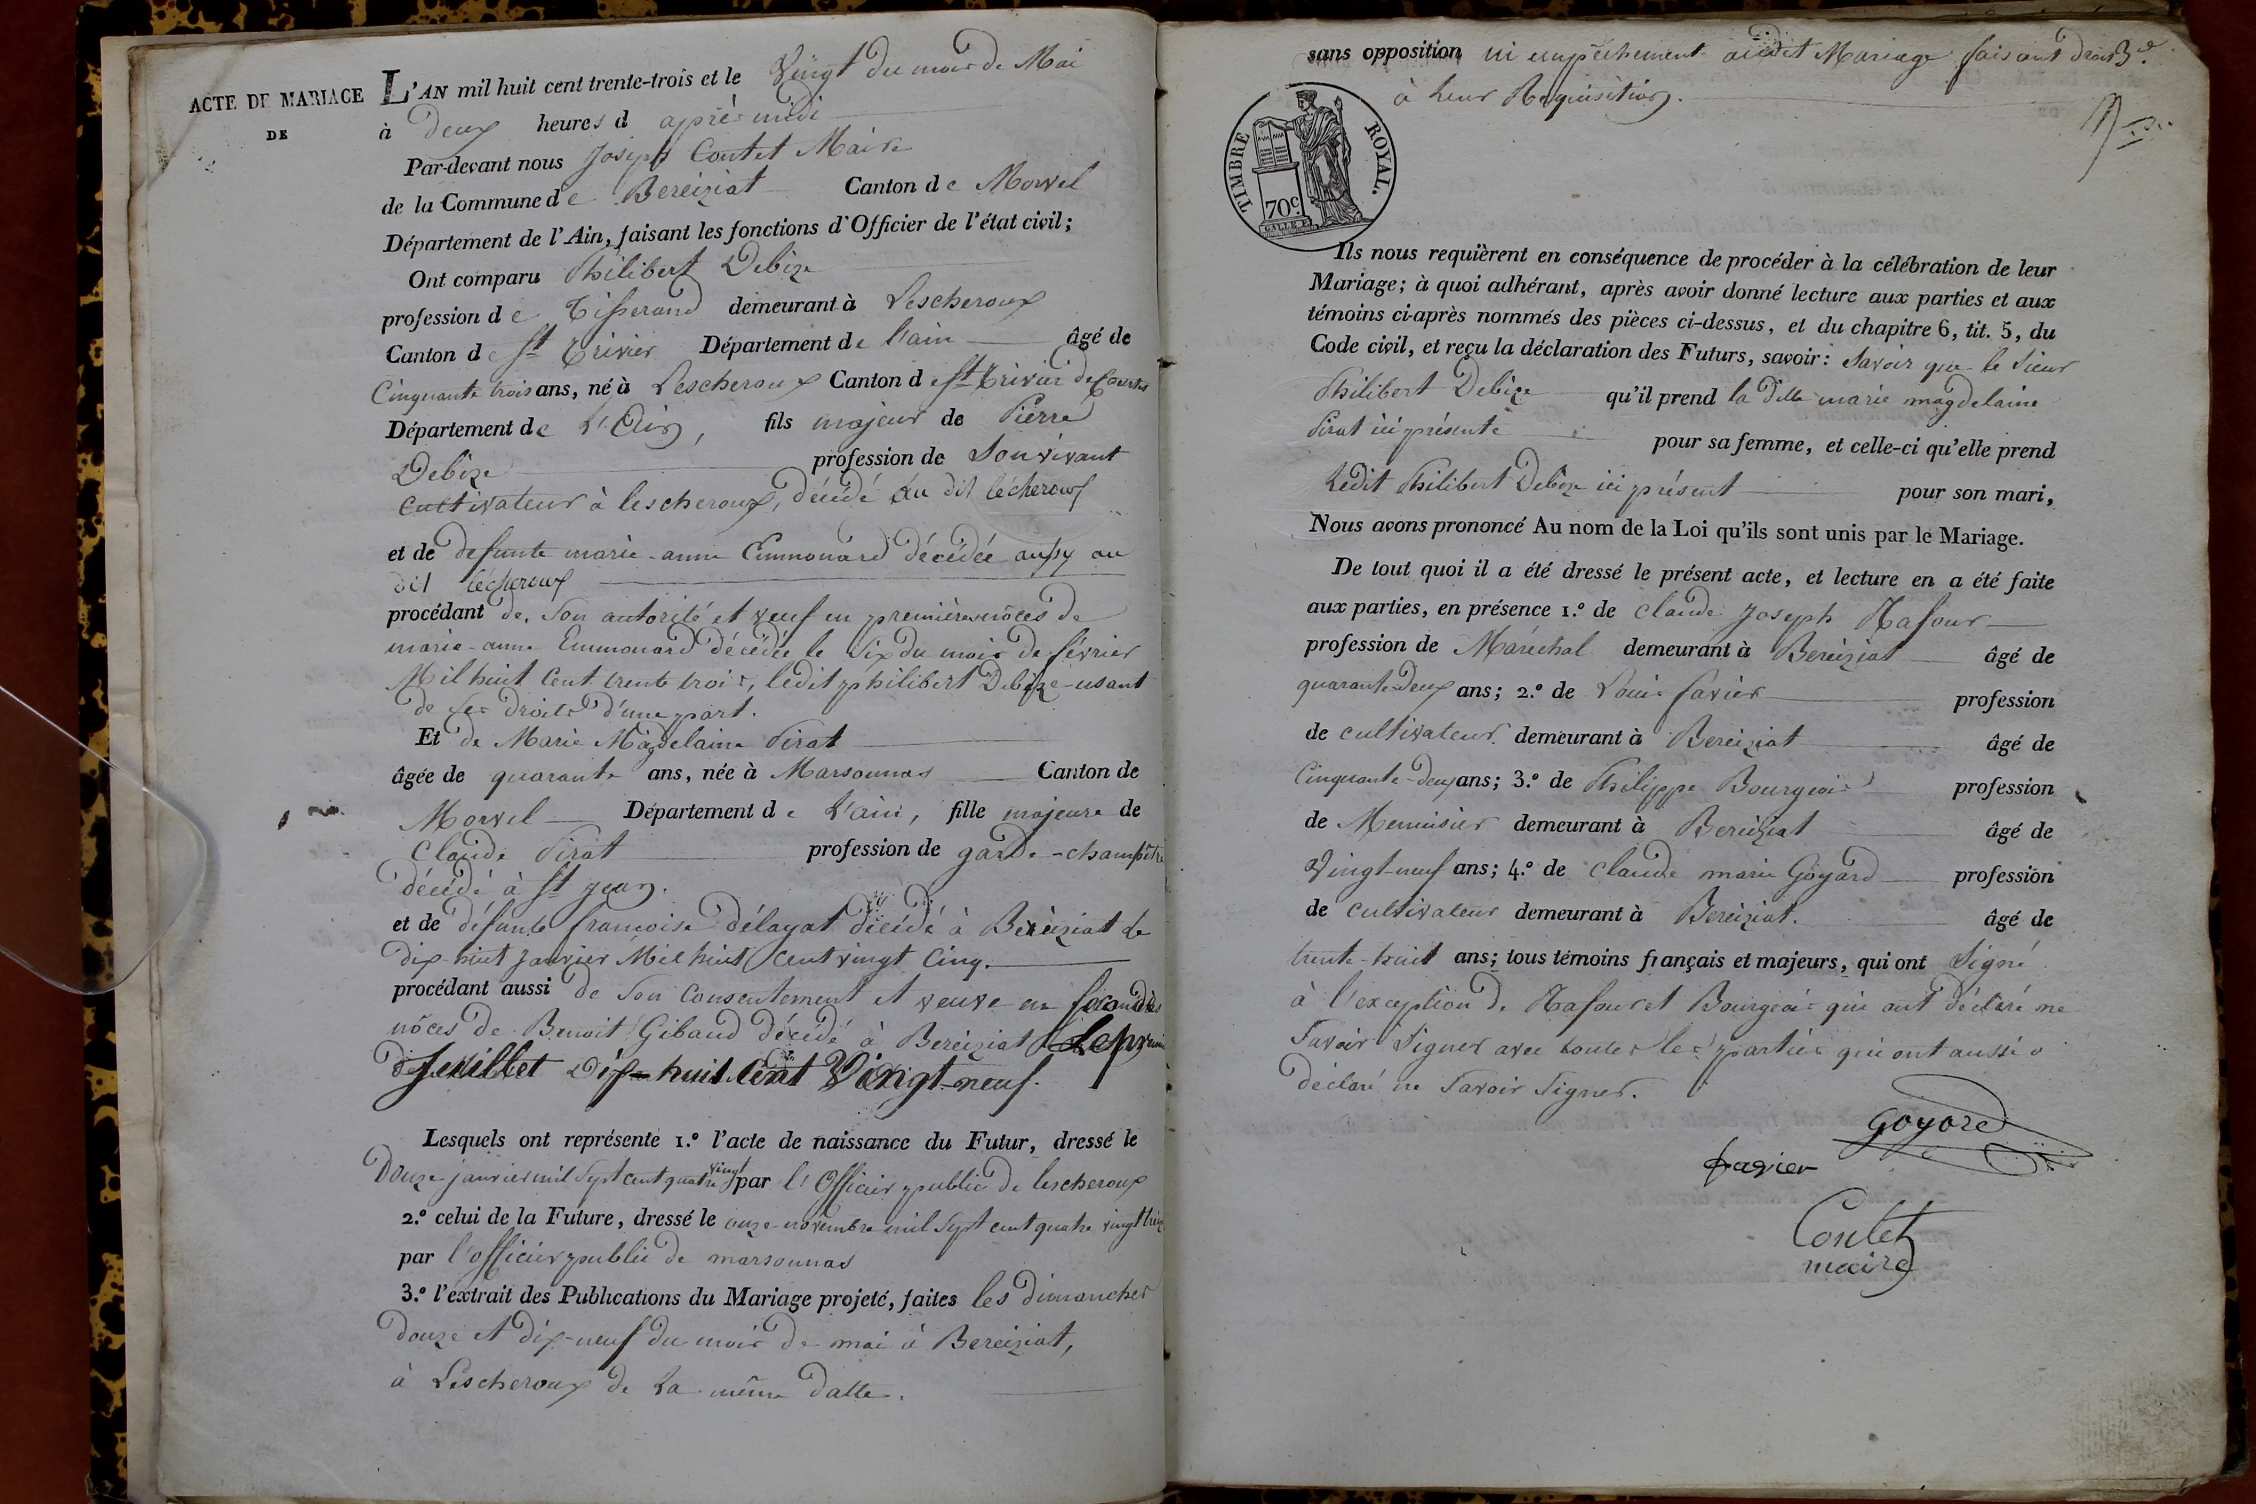 ACTE DE MARIAGE
DE
L'AN mil huit cent trente-trois et le Vingt du mois de Mai
à Deux heures d après midi
Par-devant nous Joseph Contet Maire
de la Commune de Bereiziat Canton de Morvel
Département de l'Ain, faisant les fonctions d'Officier de l'état civil;
Ont comparu Philibert Debize
profession de Tisserand demeurant à Lescheroux
Canton de St Trivier Département de l'ain âgé de
Cinquante trois ans, né à Lescheroux Canton de St Trivier de Courtes
Département de L'Ain, fils majeur de Pierre
Debize profession de Son vivant
Cultivateur à lescheroux, décédé au dit lécheroux
et de defunte marie-anne Emmonard décédée aussy au
dit lécheroux
procédant de son autorité et veuf en premières nôces de
marie-anne Emmonard décédée le Six du mois de février
Mil huit Cent trente trois, ledit philibert Debize usant
de ses droits d'une part.
Et de Marie Magdelaine Pirat
âgée de quarante ans, née à Marsonnas Canton de
Morvel Département de L'ain, fille majeure de
Claude Pirat profession de garde-champêtre
décédé à St jean.
et de défunte francoise Délayat décédé à Bereiziat le
Dix-huit Janvier Mil huit Cent vingt Cinq.
procédant aussi de son Consentement et veuve en secondes
nôces de Benoit Gibaud décédé à Bereiziat Le
Juillet Dix-huit Cent Vingt-neuf.
Lesquels ont représenté 1.° l'acte de naissance du Futur, dressé le
Douze janvier mil sept cent quatre vingt par l'Officier public de lescheroux
2.° celui de la Future, dressé le onze novembre mil sept cent quatre vingt
par l'officier public de marsonnas
3.° l'extrait des Publications du Mariage projeté, faites les dimanches
Douze et dix-neuf du mois de mai à Bereiziat,
à Lescheroux de la même datte.
sans opposition ni empêchement audit Mariage faisant droit
à leur Réquisition.
TIMBRE ROYAL.
70c.
Ils nous requièrent en conséquence de procéder à la célébration de leur
Mariage; à quoi adhérant, après avoir donné lecture aux parties et aux
témoins ci-après nommés des pièces ci-dessus, et du chapitre 6, tit. 5, du
Code civil, et reçu la déclaration des Futurs, savoir: Savoir que le Sieur
Philibert Debize qu'il prend la Dlle marie magdelaine
Pirat ici présente pour sa femme, et celle-ci qu'elle prend
Ledit Philibert Debize ici présent pour son mari,
Nous avons prononcé Au nom de la Loi qu'ils sont unis par le Mariage.
De tout quoi il a été dressé le présent acte, et lecture en a été faite
aux parties, en présence 1.° de Claude Joseph Rafour
profession de Maréchal demeurant à Bereiziat âgé de
quarante-deux ans; 2.° de Louis favier profession
de cultivateur demeurant à Bereiziat âgé de
Cinquante-deux ans; 3.° de Philippe Bourgeois profession
de Menuisier demeurant à Bereiziat âgé de
Vingt-neuf ans; 4.° de Claude marie Goyard profession
de cultivateur demeurant à Bereiziat. âgé de
trente-huit ans; tous témoins français et majeurs, qui ont Signé
à l'exception de Rafour et Bourgeois qui ont déclaré ne
Savoir Signer avec toutes les parties qui ont aussi
déclaré ne Savoir Signer.
Goyard
favier
Contet
maire